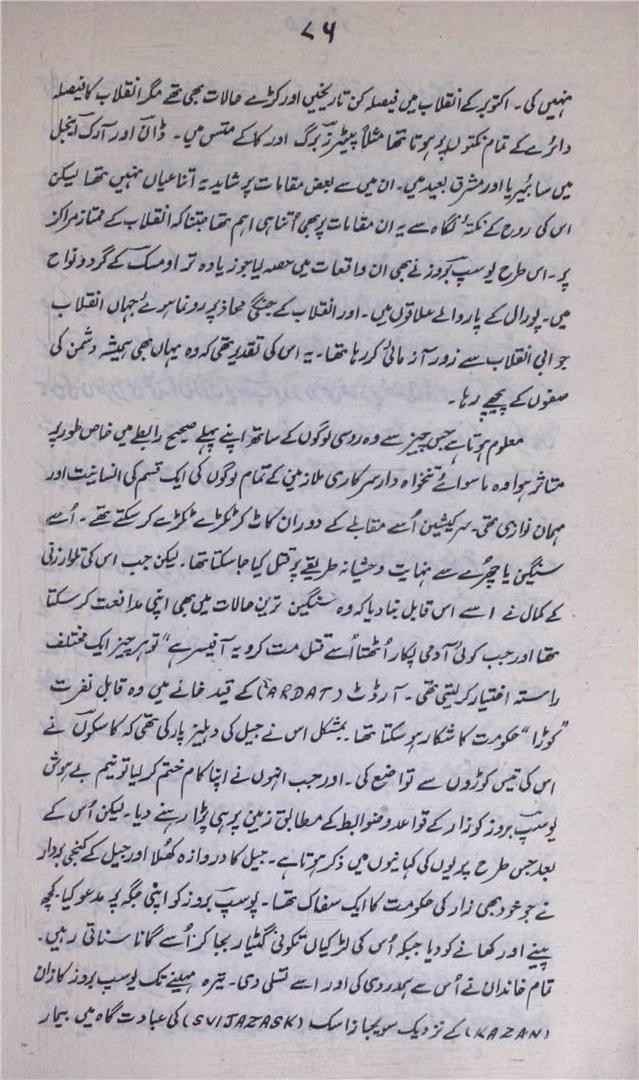 ۸۶
نہیں کی۔ اکتوبر کے انقلاب میں فیصلہ کن تاریخیں اور کڑے حالات بھی تھے مگر انقلاب کا فیصلہ
دائرے کے تمام نکتوں پر ہوتا تھا مثلاً پیٹرزبرگ اور کاکے متس میں۔ ڈان اور آرک اینجل
میں سائبیریا اور مشرق بعید میں۔ ان میں سے بعض مقامات پر شاید یہ اتنا عیاں نہیں تھا لیکن
اس کی روح کے نکتۂ نگاہ سے یہ ان مقامات پر بھی اُتنا ہی اہم تھا جتنا کہ انقلاب کے ممتاز مراکز
پر۔ اس طرح یوسپ بروز نے بھی ان واقعات میں حصہ لیا جو زیادہ تر اومسک کے گرد و نواح
میں۔ یورال کے پار والے علاقوں میں۔ اور انقلاب کے جنگی محاذ پر رونما ہوئے جہاں انقلاب
جوابی انقلاب سے زور آزمائی کر رہا تھا۔ یہ اس کی تقدیر تھی کہ وہ یہاں بھی ہمیشہ دشمن کی
صفوں کے پیچھے رہا۔
معلوم ہوتا ہے جس چیز سے وہ روسی لوگوں کے ساتھ اپنے پہلے صحیح رابطے میں خاص طور پہ
متاثر ہوا وہ ماسوائے تنخواہ دار سرکاری ملازمین کے تمام لوگوں کی ایک قسم کی انسانیت اور
مہمان نوازی تھی۔ سرکیشین اُسے مقابلے کے دوران کاٹ کر ٹکڑے ٹکڑے کر سکتے تھے۔ اُسے
سنگین یا چھرے سے نہایت وحشیانہ طریقے پر قتل کیا جا سکتا تھا۔ لیکن جب اس کی تلوار زنی
کے کمال نے اسے اس قابل بنا دیا کہ وہ سنگین ترین حالات میں بھی اپنی مدافعت کر سکتا
تھا اور جب کوئی آدمی پکار اُٹھتا اُسے قتل مت کرو یہ آفیسر ہے" تو ہر چیز ایک مختلف
راستہ اختیار کر لیتی تھی۔ آردٹ (ARDAT) کے قید خانے میں وہ قابل نفرت
"کوڑا" حکومت کا شکار ہو سکتا تھا۔ بمشکل اس نے جیل کی دہلیز پار کی تھی کہ کاسکوں نے
اس کی تیس کوڑوں سے تواضع کی۔ اور جب انہوں نے اپنا کام ختم کر لیا تو نیم بے ہوش
یوسپ بروز کو زار کے قواعد و ضوابط کے مطابق زمین پر ہی پڑا رہنے دیا۔ لیکن اُس کے
بعد جس طرح پریوں کی کہانیوں میں ذکر ہوتا ہے۔ جیل کا دروازہ کھلا اور جیل کے کنجی بردار
نے جو خود بھی زار کی حکومت کا ایک سفاک تھا۔ یوسپ بروز کو اپنی جگہ پہ مدعو کیا۔ کچھ
پینے اور کھانے کو دیا جبکہ اُس کی لڑکیاں تکونی گٹیار بجا کر اُسے گانا سناتی رہیں۔
تمام خاندان نے اُس سے ہمدردی کی اور اسے تسلی دی۔ تیرہ مہینے تک یوسپ بروز کازان
(KAZAN) کے نزدیک سویجازاسک (SVIJAZASK) کی عبادت گاہ میں بیمار